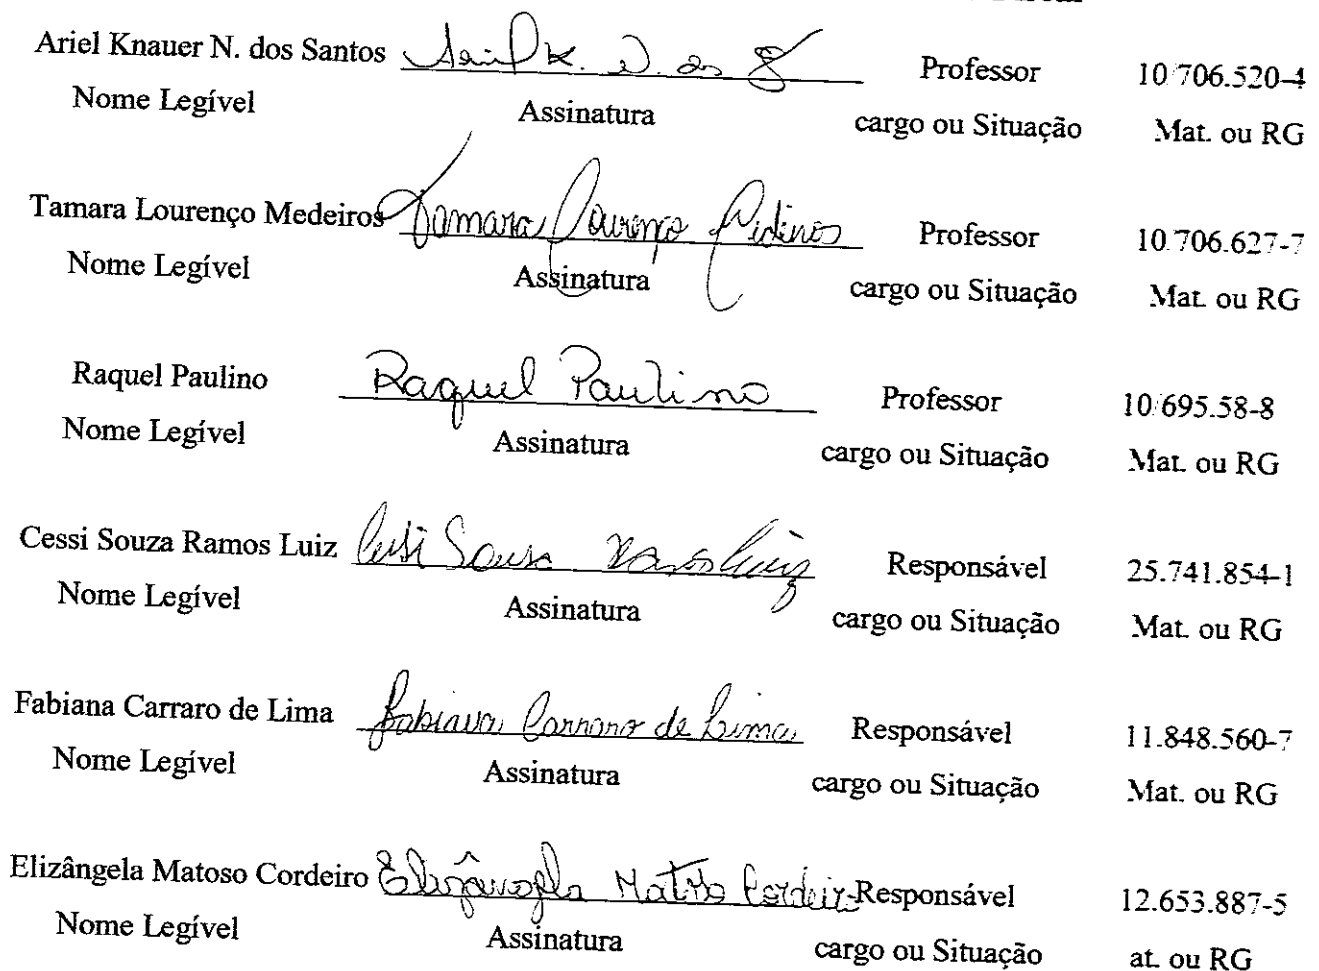 Ariel Knauer N. dos Santos Ariel K. N. dos S Professor 10/706.520-4
Nome Legível Assinatura cargo ou Situação Mat. ou RG
Tamara Lourenço Medeiros Tamara Lourenço Medeiros Professor 10.706.627-7
Nome Legível Assinatura cargo ou Situação Mat. ou RG
Raquel Paulino Raquel Paulino Professor 10/695.58-8
Nome Legível Assinatura cargo ou Situação Mat. ou RG
Cessi Souza Ramos Luiz Cessi Souza Ramos Luiz Responsável 25.741.854-1
Nome Legível Assinatura cargo ou Situação Mat. ou RG
Fabiana Carraro de Lima Fabiana Carraro de Lima Responsável 11.848.560-7
Nome Legível Assinatura cargo ou Situação Mat. ou RG
Elizângela Matoso Cordeiro Elizângela Matoso Cordeiro Responsável 12.653.887-5
Nome Legível Assinatura cargo ou Situação at. ou RG